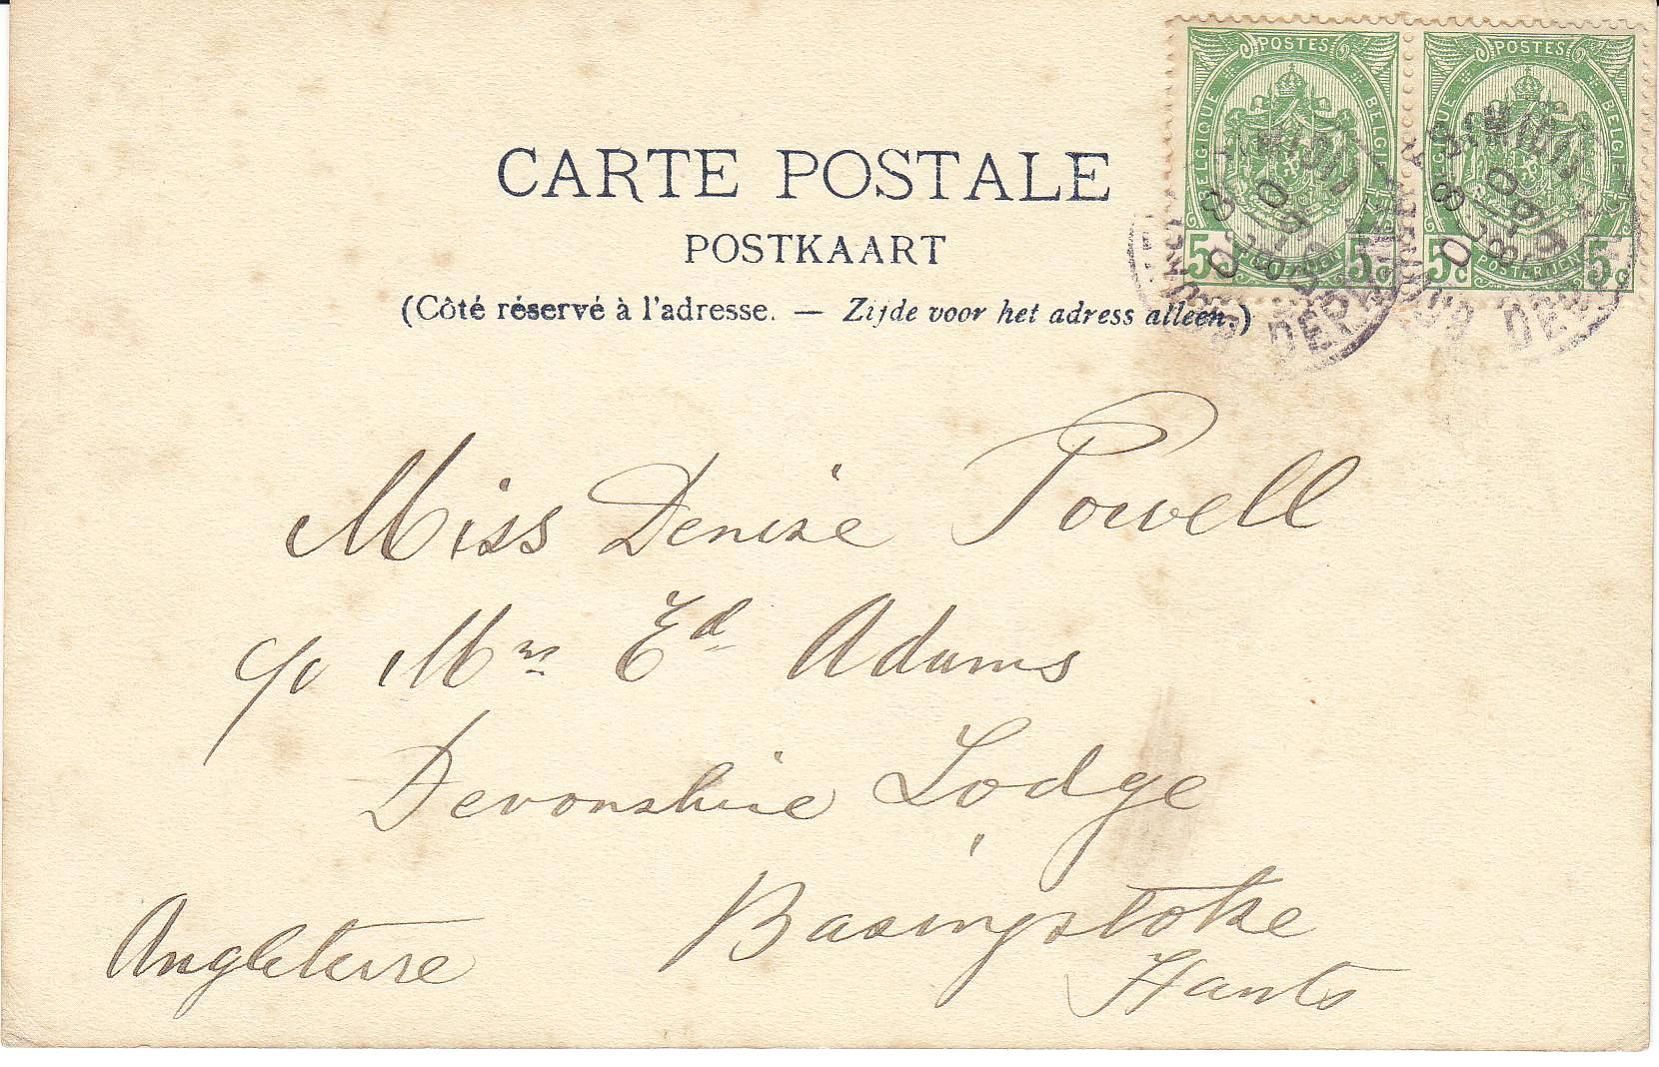 POSTES POSTES
BELGIQUE BELGIE BELGIQUE BELGIE
5c 5c 5c 5c
POSTERIJEN POSTERIJEN
CARTE POSTALE
POSTKAART
(Côté réservé à l'adresse. — Zijde voor het adress alleen.)
Miss Denise Powell
c/o Mrs Ed Adams
Devonshire Lodge
Basingstoke
Hants
Angleterre